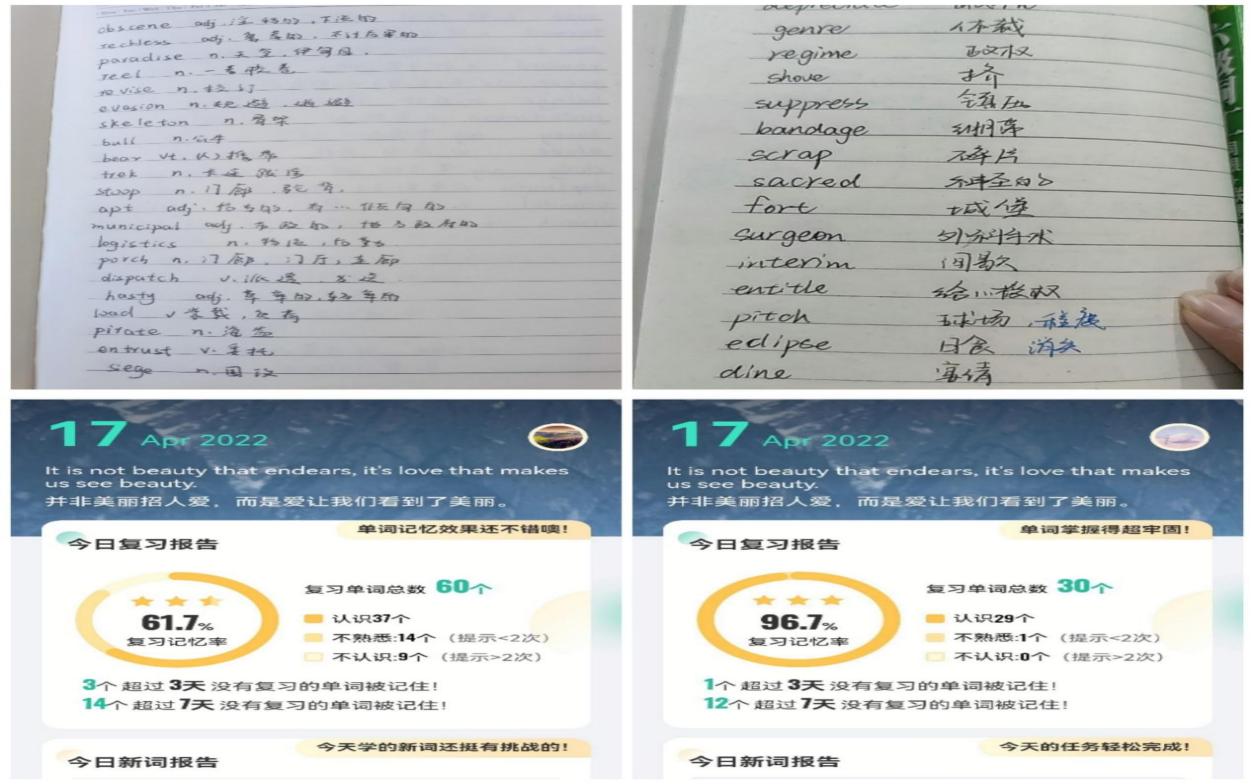 obscene adj.淫秽的,下流的
reckless adj. 鲁莽的,不计后果的
paradise n.天堂,伊甸园.
reel n.一卷胶卷
revise n.校订
evasion n.规避.逃避
skeleton n.骨架
bull n.公牛
bear vt.
trek n.长途跋涉
stoop n.门廊.驼背.
apt adj.恰当的,有…倾向的
municipal adj.市政的,地方政府的
logistics n.物流,后勤.
porch n.门廊.门厅,走廊
dispatch v.派遣.发送
hasty adj.草率的,轻率的
load v
pirate n.海盗
entrust v.委托
siege n.围攻
genre 体裁
regime 政权
shove 挤
suppress 镇压
bandage 绷带
scrap 碎片
sacred 神圣的
fort 城堡
surgeon 外科手术
interim 间歇
entitle 给…授权
pitch 球场,程度
eclipse 日食 消失
dine 宴请
17 Apr 2022
It is not beauty that endears, it's love that makes
us see beauty.
并非美丽招人爱，而是爱让我们看到了美丽。
单词记忆效果还不错噢!
今日复习报告
61.7%
复习记忆率
复习单词总数 60个
认识37个
不熟悉:14个 (提示<2次)
不认识:9个 (提示>2次)
3个 超过 3天 没有复习的单词被记住!
14个 超过 7天 没有复习的单词被记住!
今天学的新词还挺有挑战的!
今日新词报告
17 Apr 2022
It is not beauty that endears, it's love that makes
us see beauty.
并非美丽招人爱，而是爱让我们看到了美丽。
单词掌握得超牢固!
今日复习报告
96.7%
复习记忆率
复习单词总数 30个
认识29个
不熟悉:1个 (提示<2次)
不认识:0个 (提示>2次)
1个 超过 3天 没有复习的单词被记住!
12个 超过 7天 没有复习的单词被记住!
今天的任务轻松完成!
今日新词报告